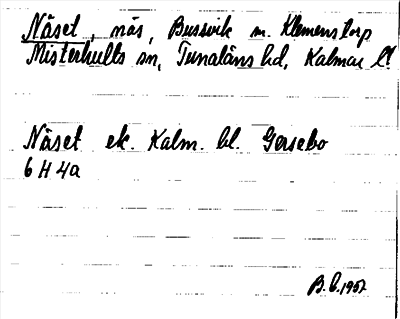 Näset, näs, Bussvik m. Klemenstorp
Misterhults sn, Tunaläns hd, Kalmar l.
Näset ek. Kalm. bl. Gersebo
6 H 4a
B. C. 1957